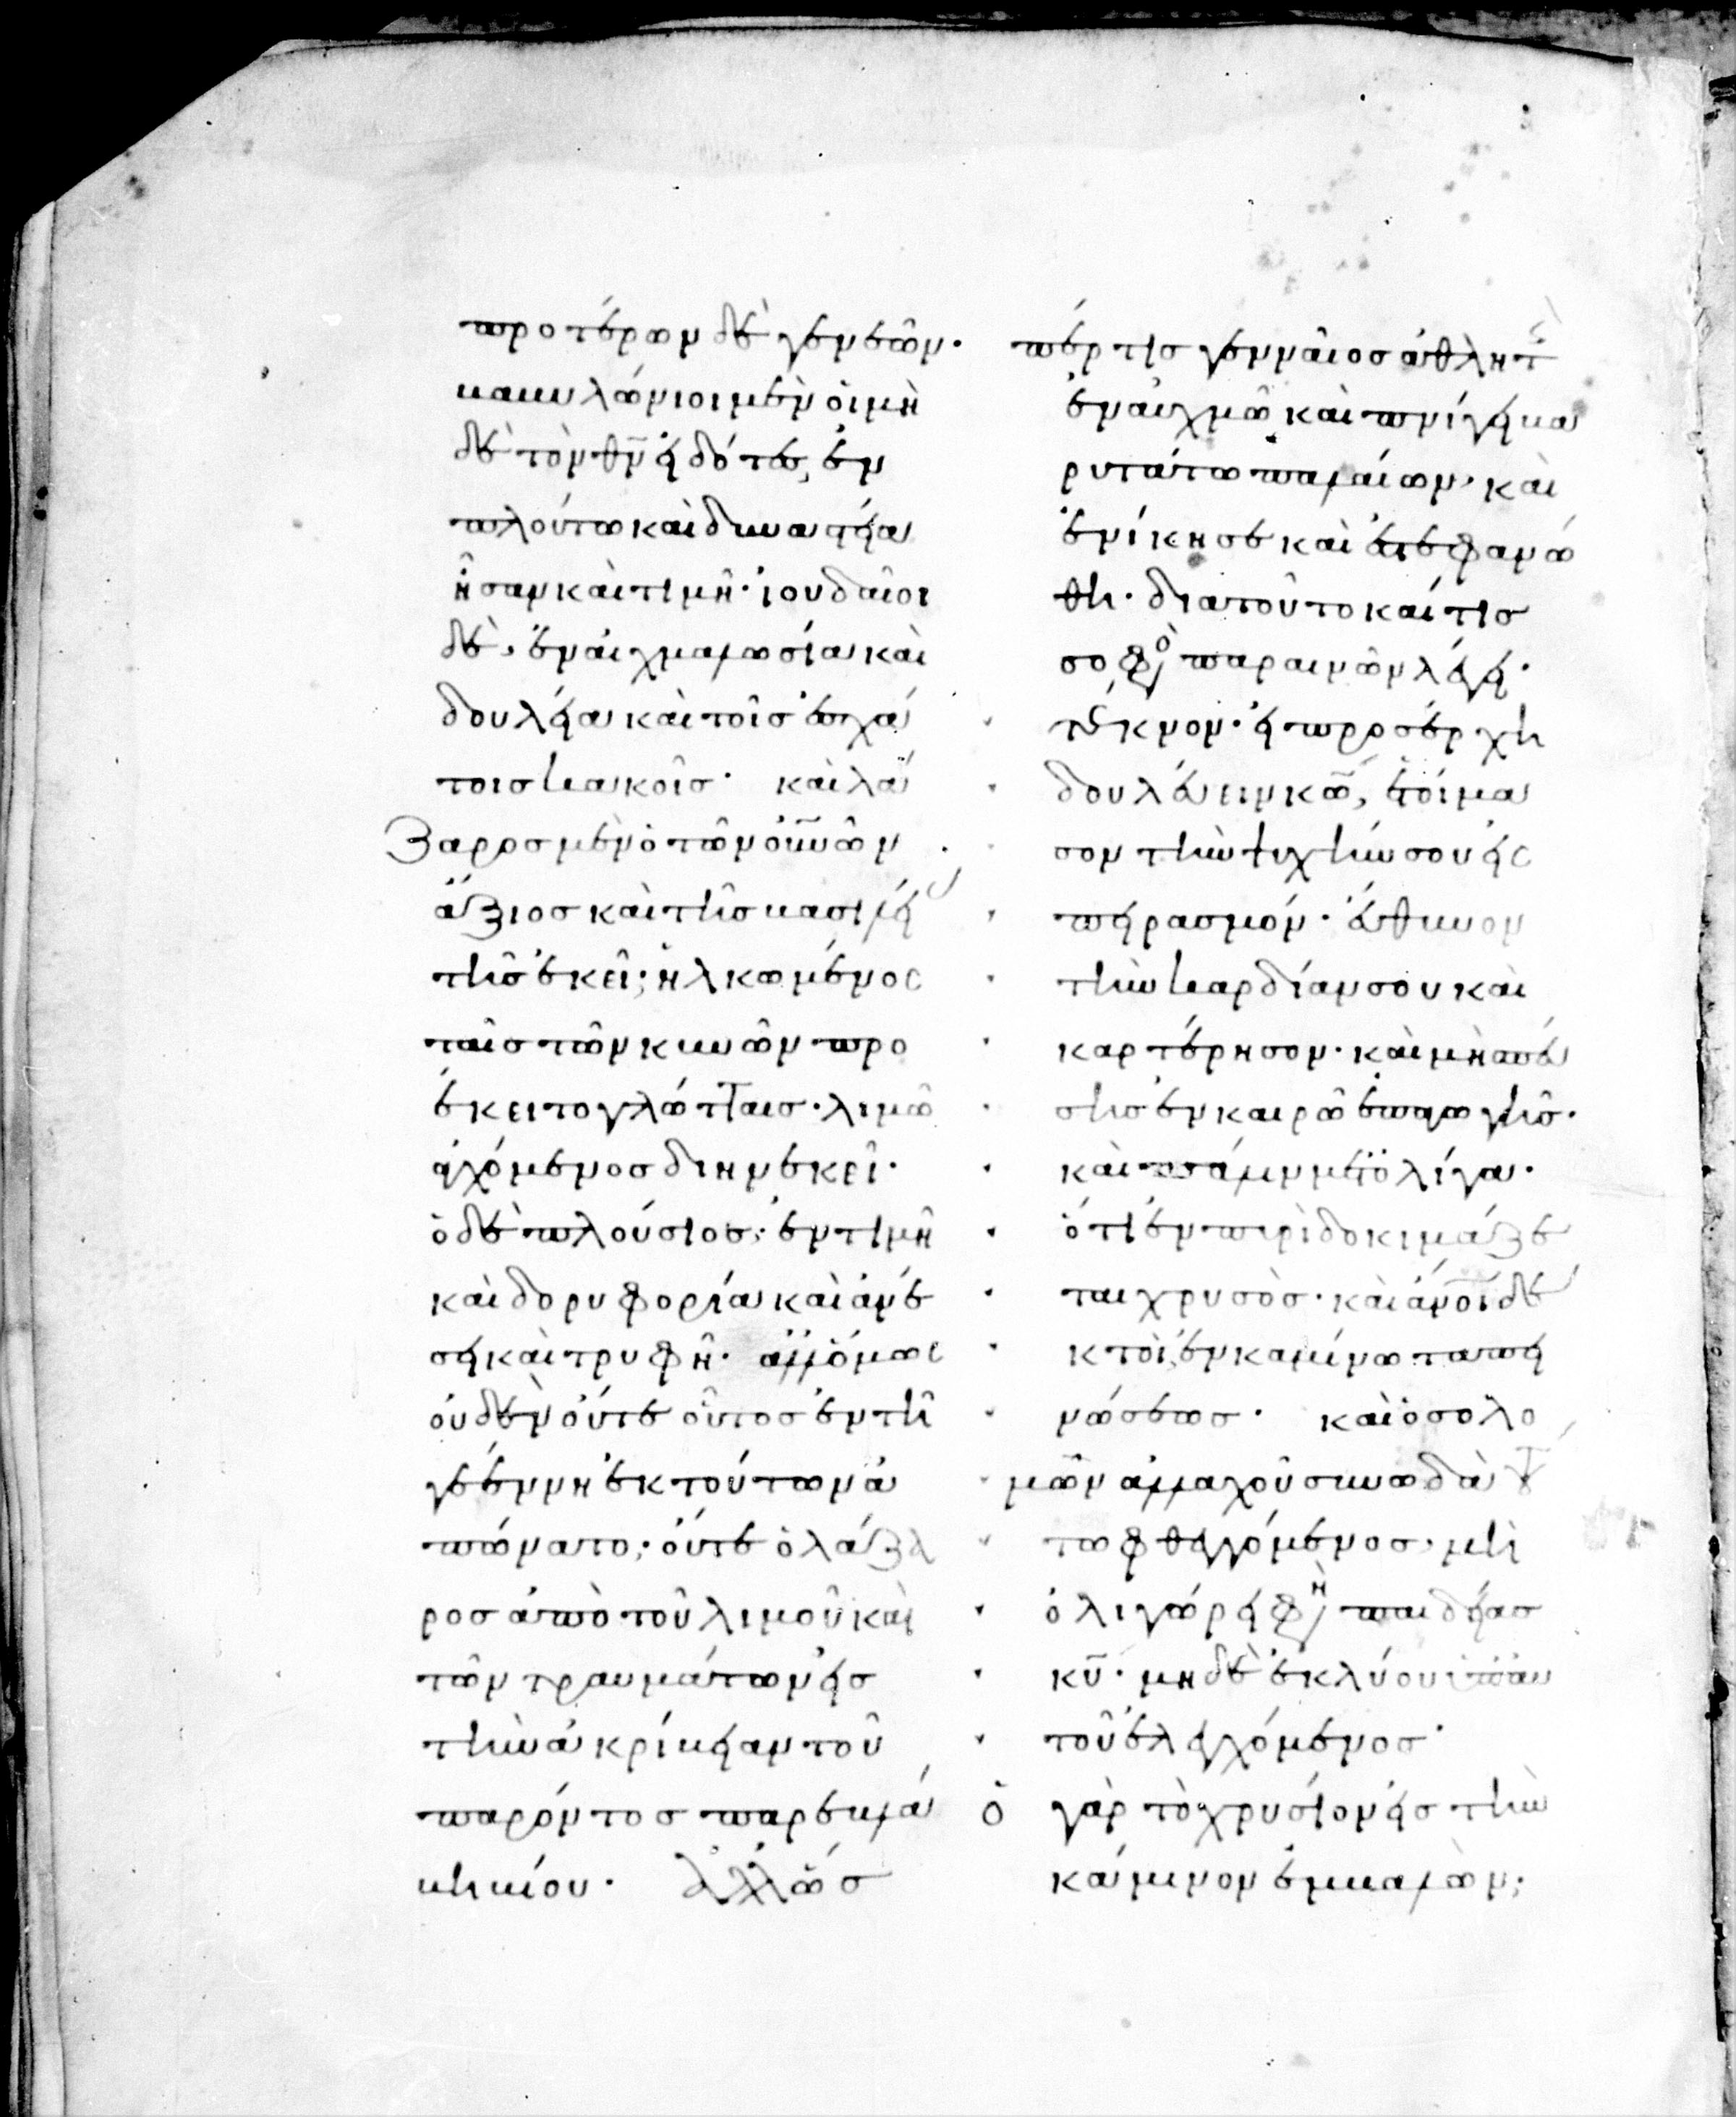 προτέρων δὲ γενεῶν·
βαβυλώνιοι μὲν οἱ μη
δὲ τὸν θν̄ εἰδότες, ἐν
πλούτω καὶ δυναστεία
ἦσαν καὶ τιμῆ· ἰουδαῖοι
δὲ, ἐν αἰχμαλωσία καὶ
δουλεία καὶ τοῖς ἐσχά
τοις κακοῖς· καὶ λά
ζαρος μὲν ὁ τῶν οὐνῶν
ἄξιος καὶ τῆς βασιλεί
τῆς ἐκεῖ; ἡλκωμένος
ταῖς τῶν κυνῶν προ
έκειτο γλώτταις· λιμῶ
ἀγχόμενος διηνεκεῖ·
ὁ δὲ πλούσιος, ἐν τιμῆ
καὶ δορυφορία καὶ ἀνέ
σει καὶ τρυφῆ· ἀλλ' ὅμως
οὐδὲν οὔτε οὗτος ἐν τῆ
γεέννη ἐκ τούτων ἀ
πώνατο; οὔτε ὁ λάζα
ρος ἀπὸ τοῦ λιμοῦ καὶ
τῶν τραυμάτων εἰς
τὴν ἀκρίβειαν τοῦ
παρόντος παρεβλά
βη βίου· ἀλλ' ὥς
πέρ τις γενναῖος ἀθλητ
ἐν αὐχμῶ καὶ πνίγει βα
ρυτάτω παλαίων, καὶ
ἐνίκησε καὶ ἐστεφανώ
θη· διὰ τοῦτο καί τις
σοφὸ παραινῶν λέγει·
τέκνον· εἰ προσέρχη
δουλεύειν κῶ, ἑτοίμα
σον τὴν ψυχήν σου εἰς
πειρασμόν· εὔθυνον
τὴν καρδίαν σου καὶ
καρτέρησον· καὶ μὴ σπεύ
σης ἐν καιρῶ ἐπαγωγῆς·
καὶ πάλιν μετ' ὀλίγα·
ὅτι ἐν πυρὶ δοκιμάζε
ται χρυσὸς· καὶ ἀνοι δε
κτοὶ, ἐν καμίνω ταπει
νώσεως· καὶ ὁ σολο
μῶν ἀλλαχοῦ συνωδὰ τ
τω φθεγγόμενος· μὴ
ὀλιγώρει φη παιδείας
κῡ· μηδὲ ἐκλύου ὑπ' αὐ
τοῦ ἐλεγχόμενος·
ὁ γὰρ τὸ χρυσίον εἰς τὴν
κάμινον ἐμβαλὼν;